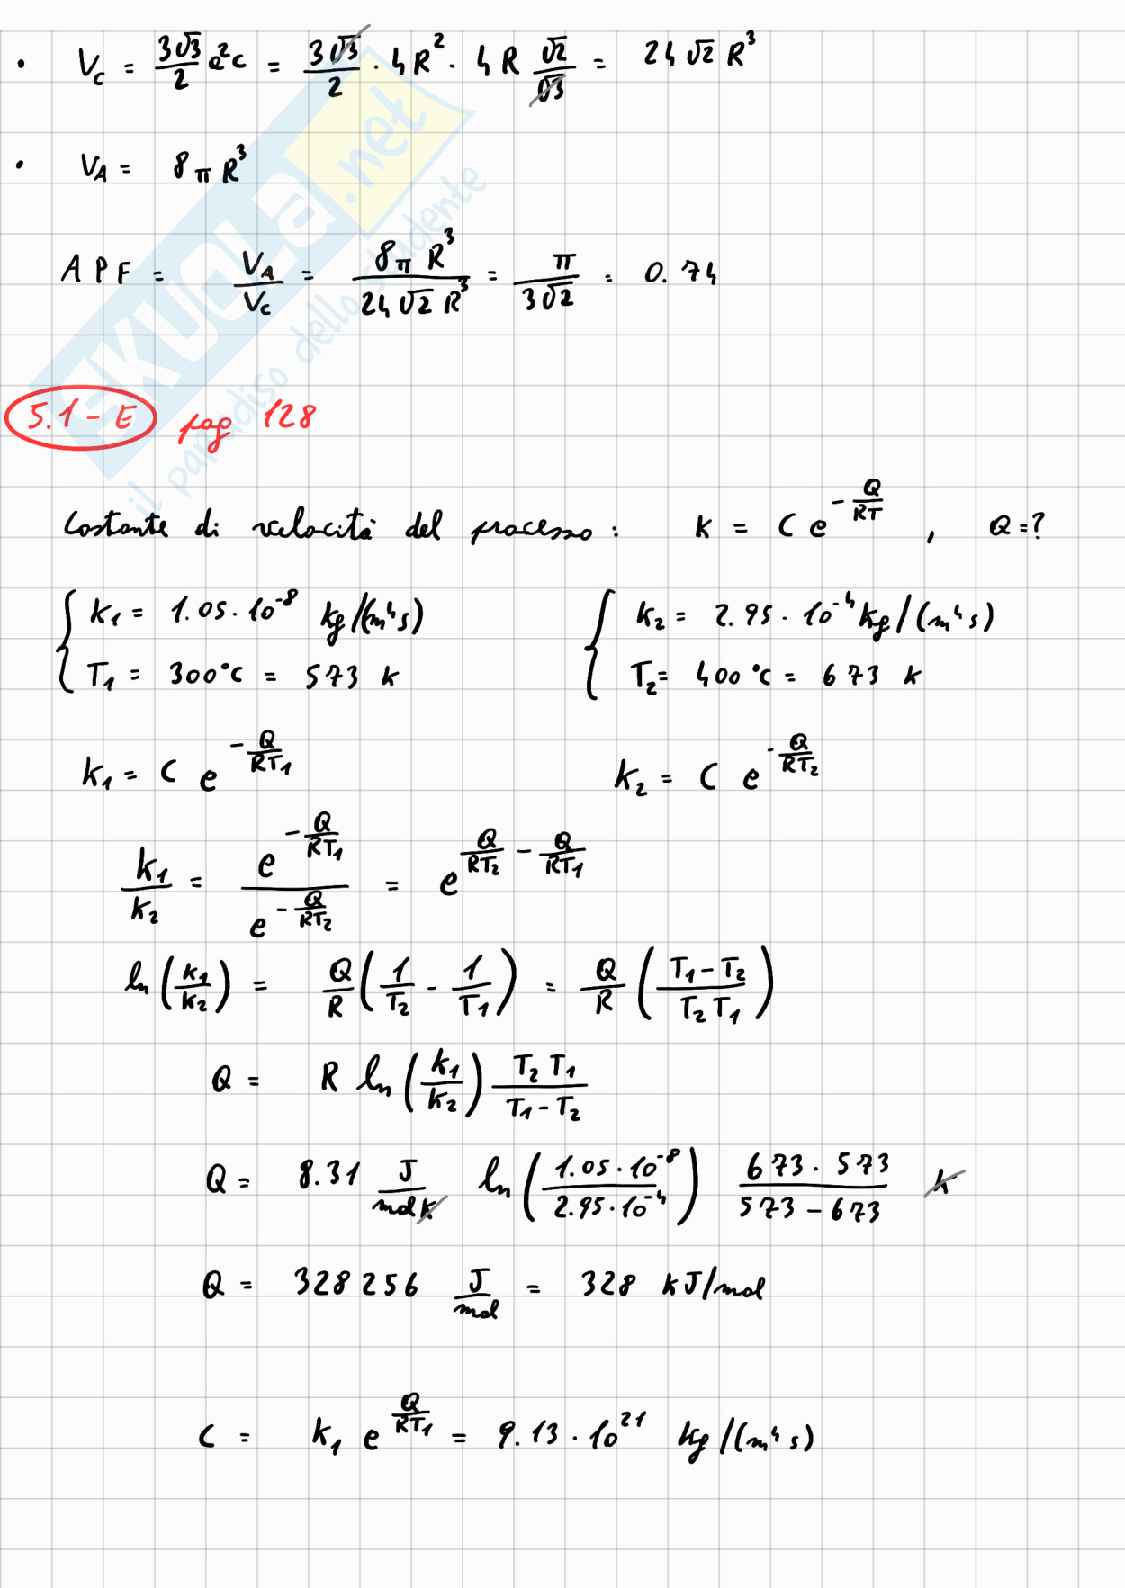 • V_C = 3√3/2 a²c = 3√3/2 · 4R² · 4R √2/√3 = 24√2 R³
• V_A = 8π R³
APF = V_A/V_C = 8π R³/24√2 R³ = π/3√2 = 0.74
5.1-E pag 128
Costante di velocità del processo: K = C e^(-Q/RT), Q=?
K₁ = 1.05·10⁻⁸ kg/(m⁴s) K₂ = 2.95·10⁻⁴ kg/(m⁴s)
T₁ = 300°C = 573 K T₂ = 400°C = 673 K
K₁ = C e^(-Q/RT₁) K₂ = C e^(-Q/RT₂)
K₁/K₂ = e^(-Q/RT₁)/e^(-Q/RT₂) = e^(Q/RT₂ - Q/RT₁)
ln(K₁/K₂) = Q/R (1/T₂ - 1/T₁) = Q/R ((T₁-T₂)/(T₂T₁))
Q = R ln(K₁/K₂) T₂T₁/(T₁-T₂)
Q = 8.31 J/(mol K) ln(1.05·10⁻⁸/2.95·10⁻⁴) 673·573/(573-673) K
Q = 328256 J/mol = 328 KJ/mol
C = K₁ e^(Q/RT₁) = 9.13·10²¹ kg/(m⁴s)
SKUOLA.net
il paradiso dello studente